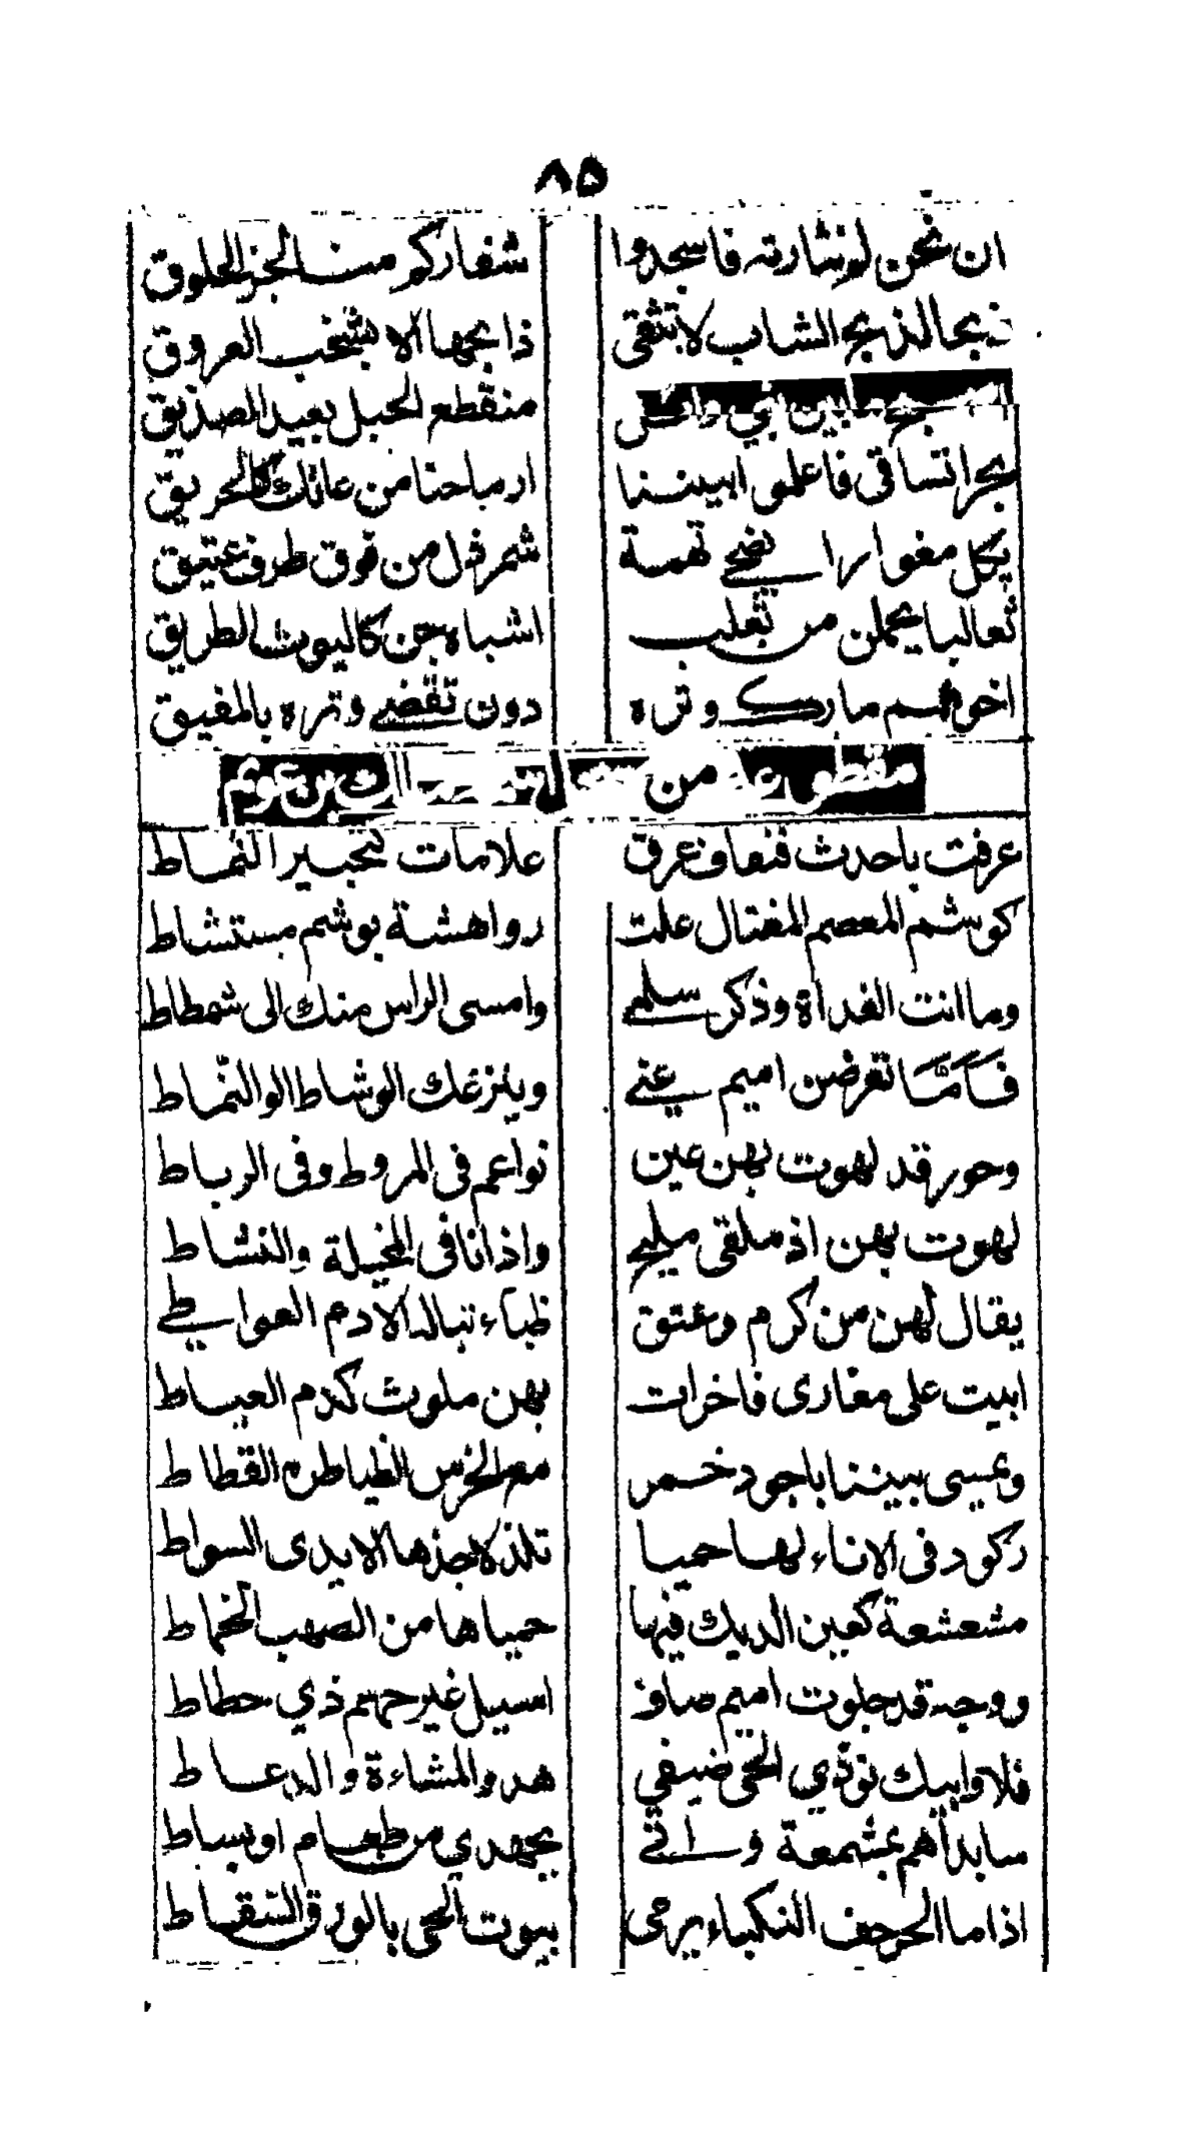 ٨٥
ان نحن لم نثارته فاسجدوا شفاركم منا لجز الحلوق
ذبحا لذبح الشاب لا تتقى ذابحها الا بشخب العروق
ابين ابني وائل منقطع الحبل بعيد الصديق
بحرا تساقى فاعلموا بيننا ارماحنا من عاتك كالحريق
بكل مغوار الضحى بهمة شمرذل من فوق طرف عتيق
ثعالبا يحملن من تغلب اشباه جن كاليوث الطريق
اخوهم مدرك وتره دون تقضى وتره بالمفيق
مقطوعة من المتنخل مالك بن عويمر
عرفت باحدث فنعاف عرق علامات كتحبير النماط
كوشم المعصم المغتال علت رواهشة بوشم مستشاط
وما انت الغداة وذكر سلمى وامسى الراس منك الى شمطاط
فَاَمَّا تعرضن اميم عنى وينزعك الوشاط الو النّماط
وحور قد لهوت بهن عين نواعم فى المروط وفى الرباط
لهوت بهن اذ ملقى مليح واذ انا فى المخيلة والنشاط
يقال لهن من كرم وعتق ظباء تبالة الادم العواطى
ابيت على معارى فاخرات بهن ملوث كدم العباط
ويمسى بيننا باجود خمر مع الخرس الضياطرة القطاط
ركود فى الاناء لها حميا تلذ لاخذها الايدى السواط
مشعشعة كعين الديك فيها حمياها من الصهب الخماط
ووجه قد جلوت اميم صاف اسيل غير جهم ذي حطاط
فلا وابيك نوذي الحى ضيفي هدوا المشاءة والدعاط
سابداهم بمشمعة واتى بجهدي من طعام او بساط
اذا ما الحرجف النكباء يرمى بيوت الحى بالورق السقاط